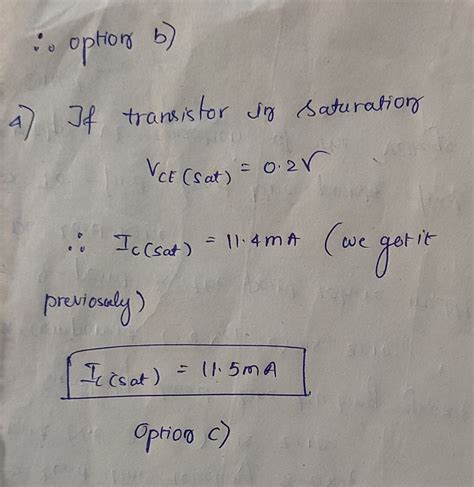 ∴ option b)
4) If transistor in saturation
VCE (sat) = 0.2V
∴ IC(sat) = 11.4mA (we got it
previosely)
IC(sat) = 11.5mA
Option c)